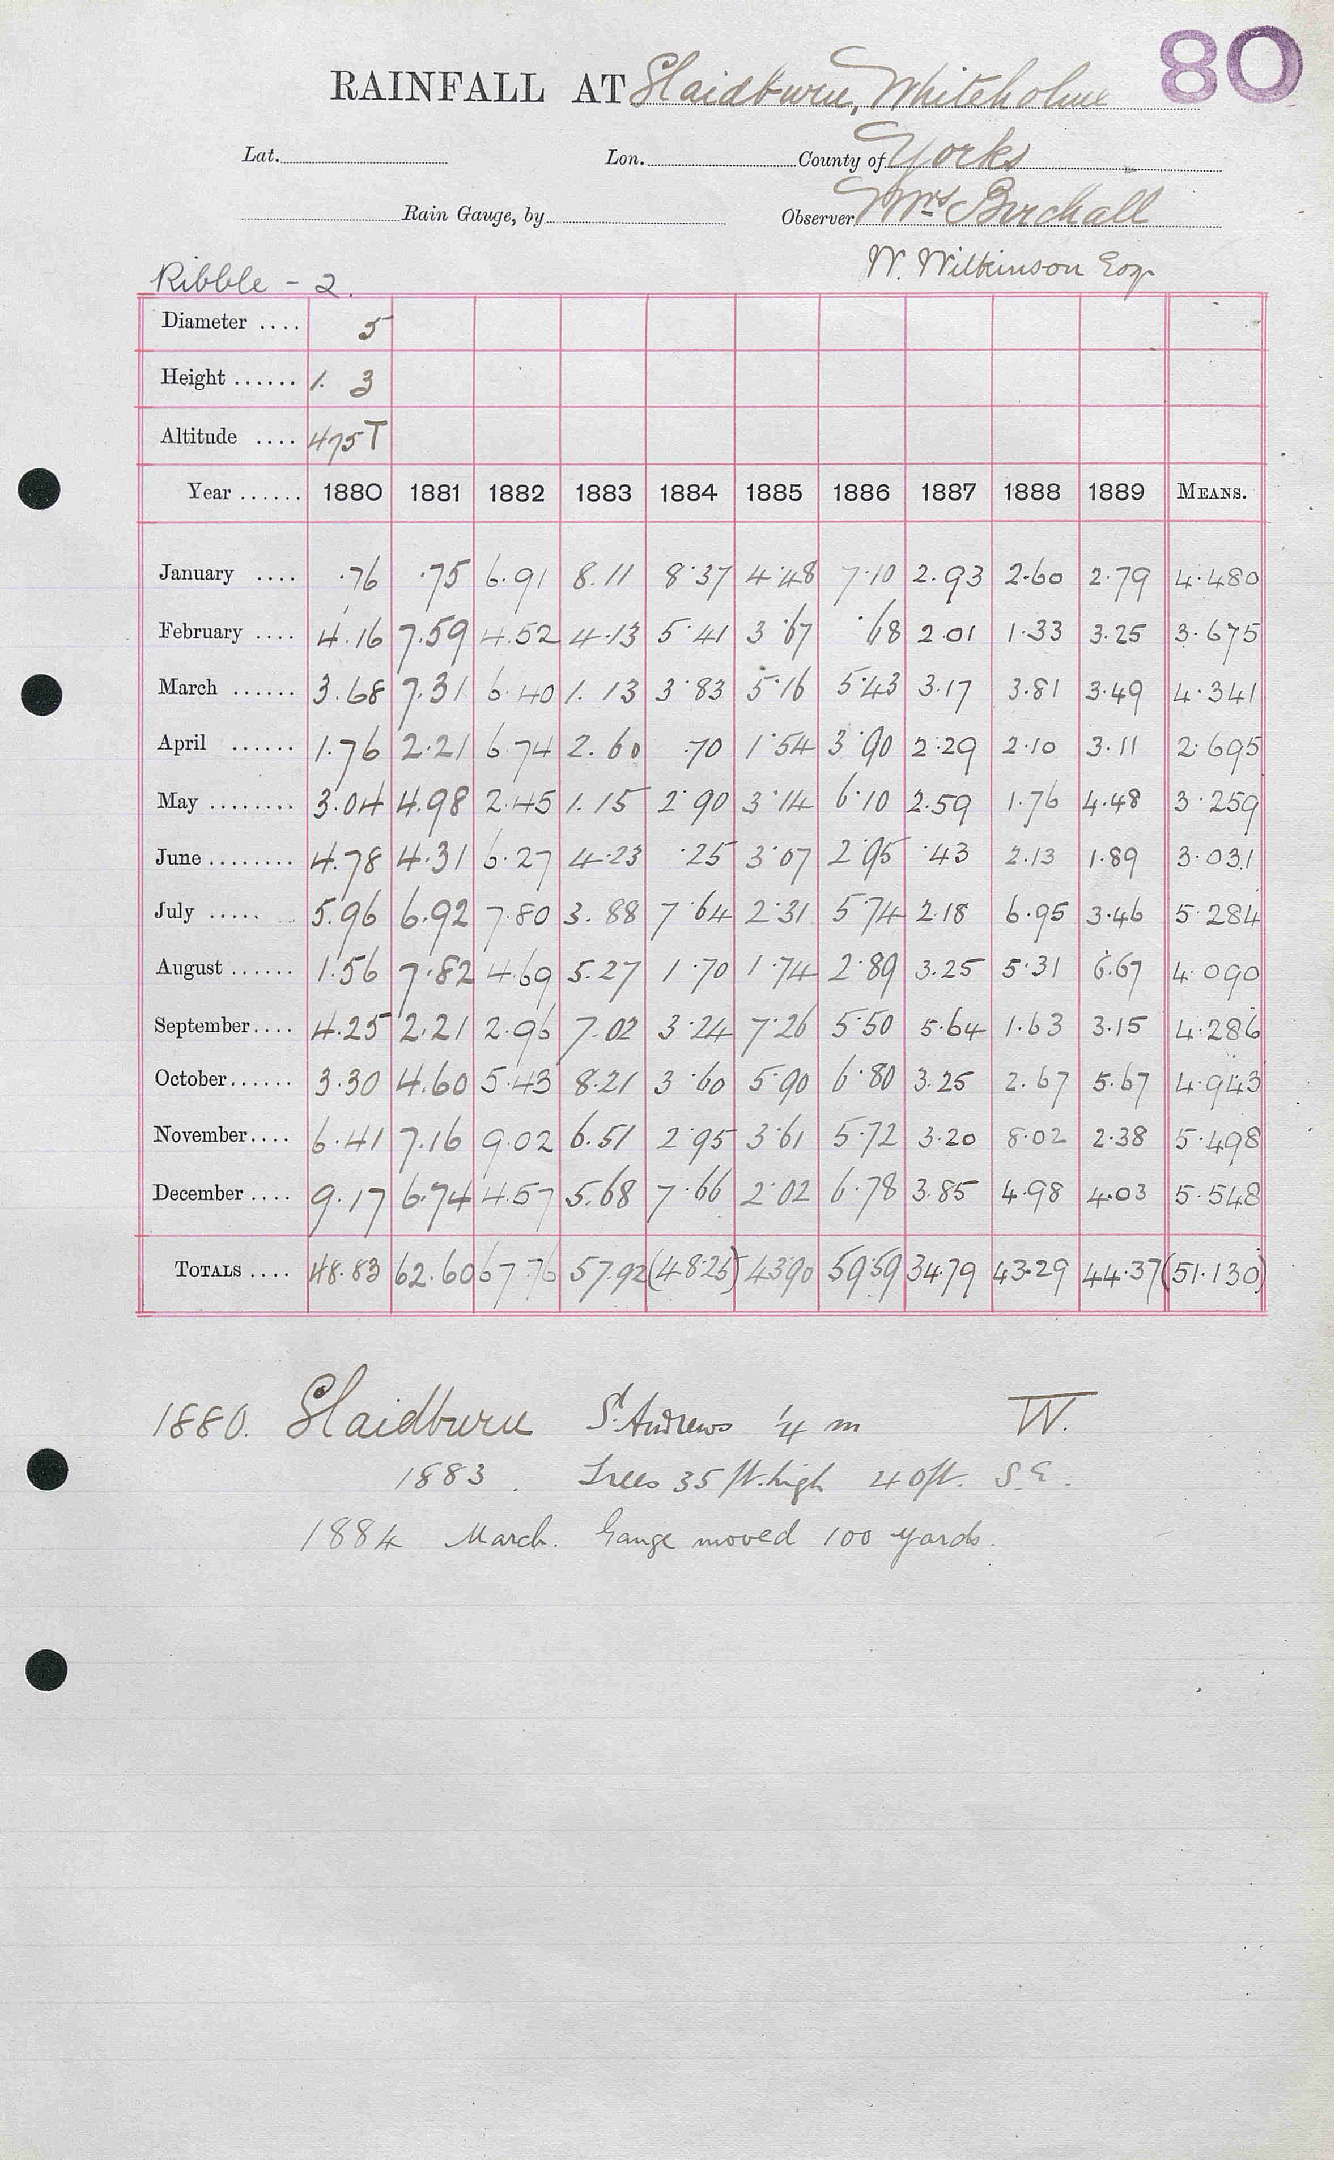 80
RAINFALL AT Slaidburn, Whiteholme
Lat. Lon. County of Yorks
Rain Gauge, by Observer Mrs Birchall
W. Wilkinson Esq
Ribble - 2.
Diameter .... 5
Height ...... 1. 3
Altitude .... 475 T
Year ...... 1880 1881 1882 1883 1884 1885 1886 1887 1888 1889 MEANS.
January .... .76 .75 6.91 8.11 8.37 4.48 7.10 2.93 2.60 2.79 4.480
February .... 4.16 7.59 4.52 4.13 5.41 3.67 .68 2.01 1.33 3.25 3.675
March ...... 3.68 7.31 6.40 1.13 3.83 5.16 5.43 3.17 3.81 3.49 4.341
April ...... 1.76 2.21 6.74 2.60 .70 1.54 3.90 2.29 2.10 3.11 2.695
May ........ 3.04 4.98 2.45 1.15 2.90 3.14 6.10 2.59 1.76 4.48 3.259
June ........ 4.78 4.31 6.27 4.23 .25 3.07 2.95 .43 2.13 1.89 3.031
July ..... 5.96 6.92 7.80 3.88 7.64 2.31 5.74 2.18 6.95 3.46 5.284
August ...... 1.56 7.82 4.69 5.27 1.70 1.74 2.89 3.25 5.31 6.67 4.090
September .... 4.25 2.21 2.96 7.02 3.24 7.26 5.50 5.64 1.63 3.15 4.286
October ...... 3.30 4.60 5.43 8.21 3.60 5.90 6.80 3.25 2.67 5.67 4.943
November .... 6.41 7.16 9.02 6.51 2.95 3.61 5.72 3.20 8.02 2.38 5.498
December .... 9.17 6.74 4.57 5.68 7.66 2.02 6.78 3.85 4.98 4.03 5.548
TOTALS .... 48.83 62.60 67.76 57.92 (48.25) 43.90 59.59 34.79 43.29 44.37 (51.130)
1880. Slaidburn St. Andrews 1/4 m W.
1883. Trees 35 ft. high 40 ft. S.E.
1884 March. Gauge moved 100 yards.